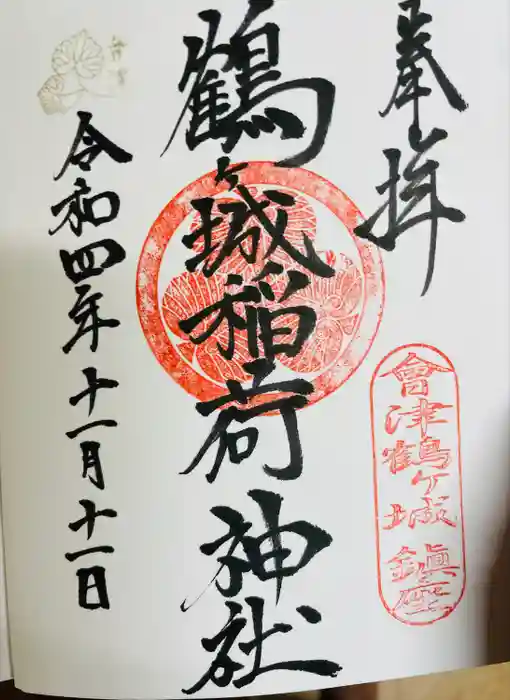 奉拝
會津鶴ヶ城鎮座
鶴ヶ城稲荷神社
令和四年十一月十一日